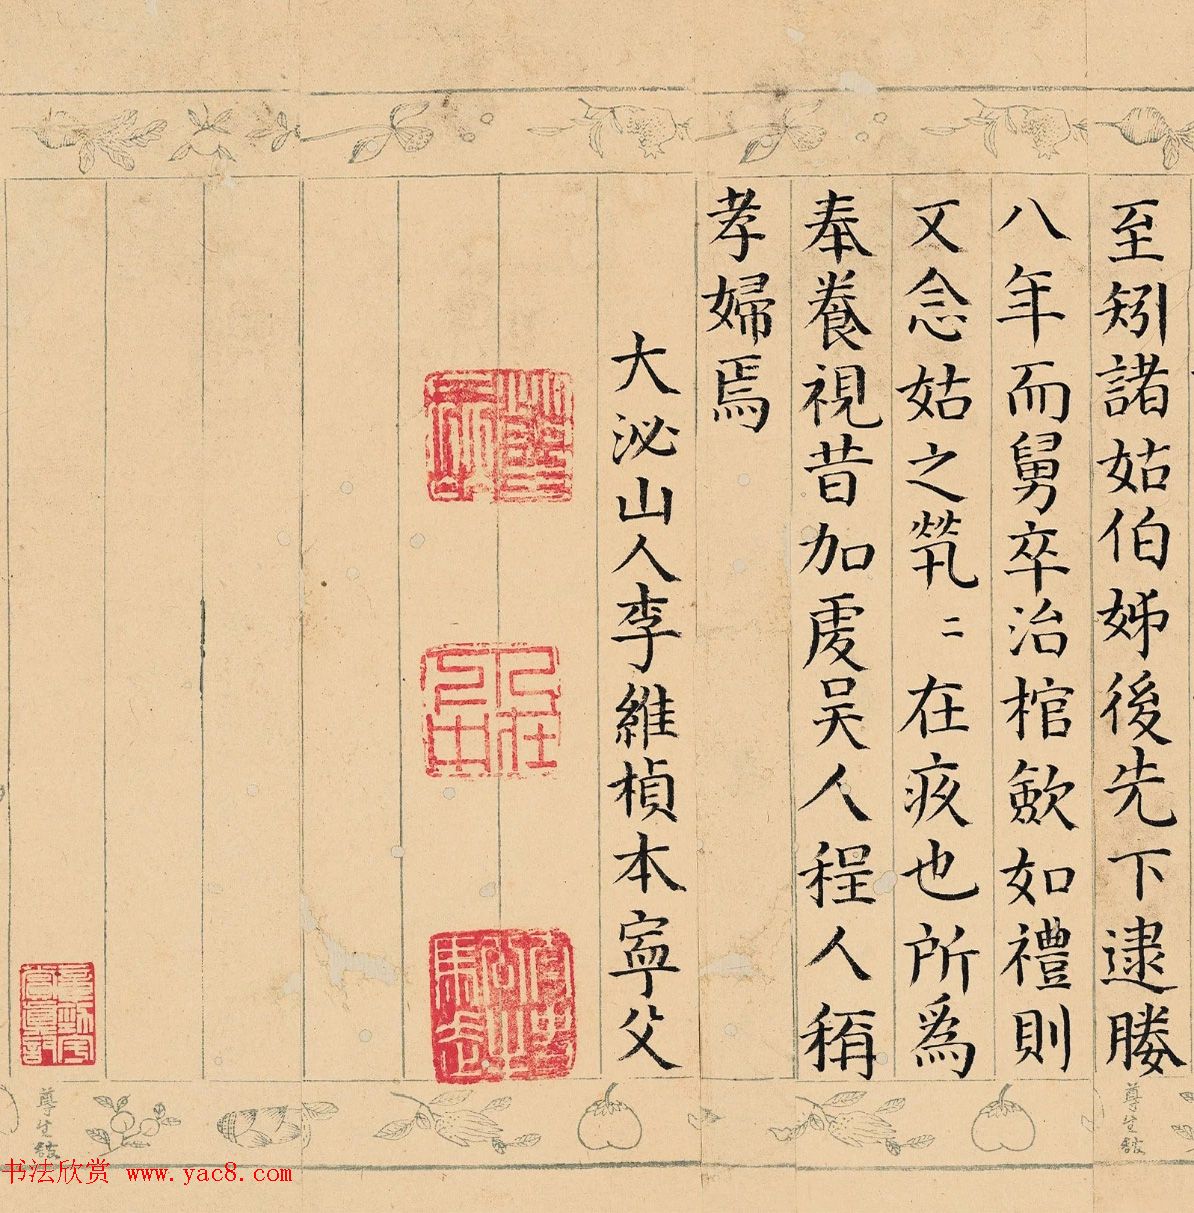 至矧諸姑伯姊後先下逮媵
八年而舅卒治棺斂如禮則
又念姑之煢二在疚也所為
奉養視昔加虔吳人程人稱
孝婦焉
大泌山人李維楨本寧父
尊生館
尊生館
书法欣赏 www.yac8.com